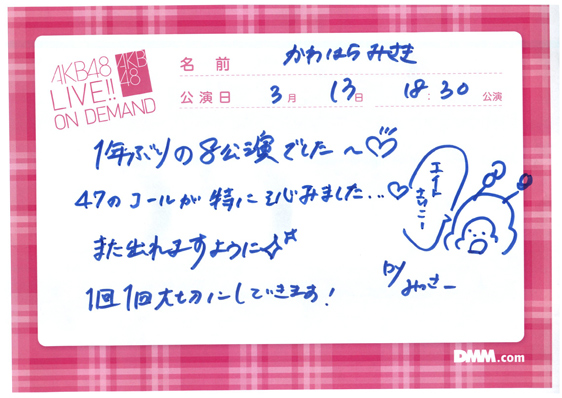 AKB48
LIVE!!
ON DEMAND
AKB
48
名前 かわはらみさき
公演日 3月 13日 18:30 公演
1年ぶりの8公演でした〜♡
47のコールが特に心みました...♡
また出れますように☆
1回1回大切にしできます!
エイト
さいこー
by
みっきー
DMM.com